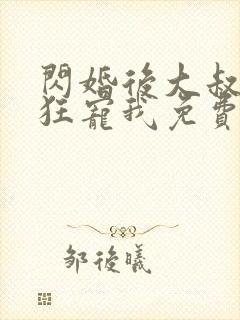 閃婚後大叔
狂寵我免費
鄒後曦